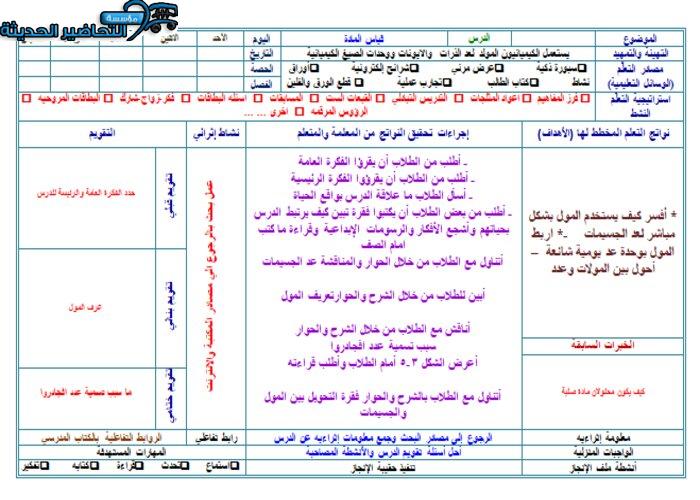 مؤسسة
التحاضير الحديثة
الموضوع
الدرس
قياس المادة
اليوم
الأحد
الاثنين
التهيئة والتمهيد
يستعمل الكيميائيون المولد لعد الذرات والايونات ووحدات الصيغ الكيميائية
التاريخ
مصادر التعلم
(الوسائل التعليمية)
سبورة ذكية
عرض مرئي
شرائح إلكترونية
أوراق
نشاط
كتاب الطالب
تجارب عملية
قطع الورق والفلين
الحصة
الفصل
استراتيجية التعلم
النشط
فرز المفاهيم
اعواد المثلجات
التدريس التبادلي
القبعات الست
المسابقات
اسئله البطاقات
فكر-زواج-شارك
البطاقات المروحيه
الرؤوس المرقمه
اخرى ... ...
نواتج التعلم المخطط لها (الأهداف)
إجراءات تحقيق النواتج من المعلمة والمتعلم
نشاط إثرائي
التقويم
* أفسر كيف يستخدم المول بشكل
مباشر لعد الجسيمات .* اربط
المول بوحدة عد يومية شائعة –
أحول بين المولات وعدد
الخبرات السابقة
كيف يكون محلولان مادة صلبة
ـ أطلب من الطلاب أن يقرؤا الفكرة العامة
ـ أطلب من الطلاب أن يقرؤوا الفكرة الرئيسية
ـ أسأل الطلاب ما علاقة الدرس بواقع الحياة
ـ أطلب من بعض الطلاب أن يكتبوا فقرة تبين كيف يرتبط الدرس
بحياتهم وأشجع الأفكار والرسومات الإبداعية وقراءة ما كتب
امام الصف
أتناول مع الطلاب من خلال الحوار والمناقشة عد الجسيمات
أبين للطلاب من خلال الشرح والحوارتعريف المول
أناقش مع الطلاب من خلال الشرح والحوار
سبب تسمية عدد افجادروا
أعرض الشكل ٣-٥ أمام الطلاب وأطلب قراءته
أتناول مع الطلاب بالشرح والحوار فقرة التحويل بين المول
والجسيمات
عمل بحث بالرجوع الي مصادر المكتبة والانترنت
تقويم قبلي
حدد الفكرة العامة والرئيسة للدرس
تقويم بنائي
عرف المول
تقويم ختامي
ما سبب تسمية عدد افجادروا
معلومة إثرانيه
الرجوع إلى مصادر البحث وجمع معلومات إثرانيه عن الدرس
رابط تفاعلي
الروابط التفاعلية بالكتاب المدرسي
الواجبات المنزلية
أحل أسئلة تقويم الدرس والأنشطة المصاحبة
المهارات المستهدفة
أنشطة ملف الإنجاز
تنفيذ حقيبة الإنجاز
استماع
تحدث
قراءة
كتابه
تفكير